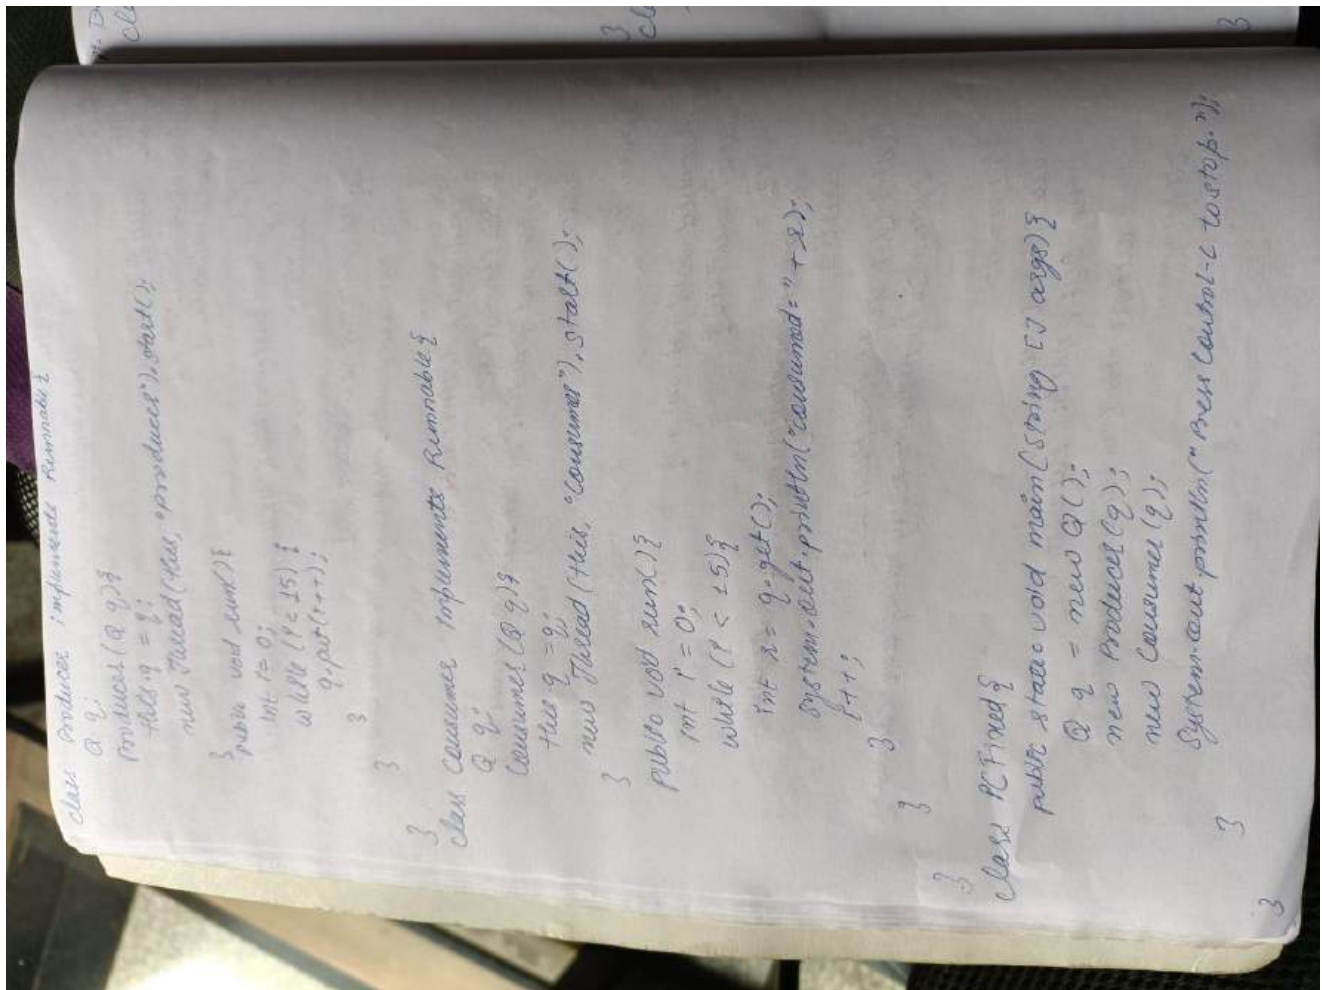 class Producer implements Runnable {
Q q;
Producer(Q q){
this.q = q;
new Thread(this, "producer").start();
}
public void run(){
int i = 0;
while (i < 15) {
q.put(i++);
}
}
}
class Consumer implements Runnable{
Q q;
Consumer(Q q){
this.q = q;
new Thread(this, "consumer").start();
}
public void run(){
int i = 0;
while (i < 15){
int r = q.get();
System.out.println("consumed:" + r);
i++;
}
}
}
class PCFixed{
public static void main(String [] args){
Q q = new Q();
new Producer(q);
new Consumer(q);
System.out.println("Press Control-C to stop.");
}
}